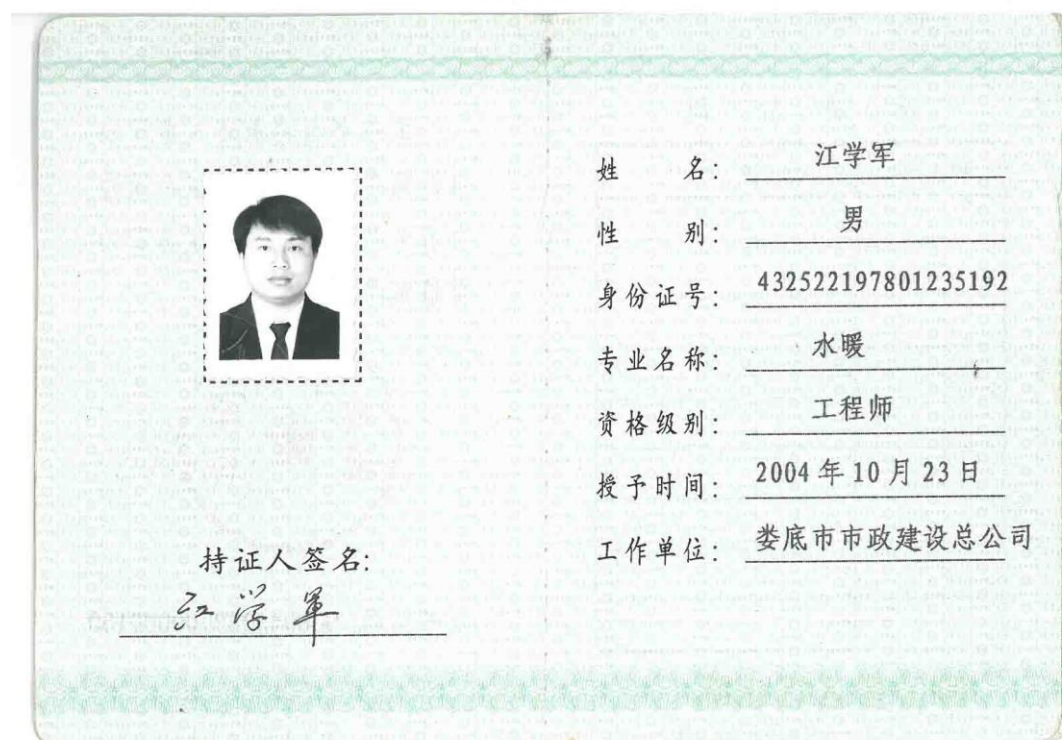 姓名：江学军
性别：男
身份证号：432522197801235192
专业名称：水暖
资格级别：工程师
授予时间：2004 年 10 月 23 日
工作单位：娄底市市政建设总公司
持证人签名：
江学军